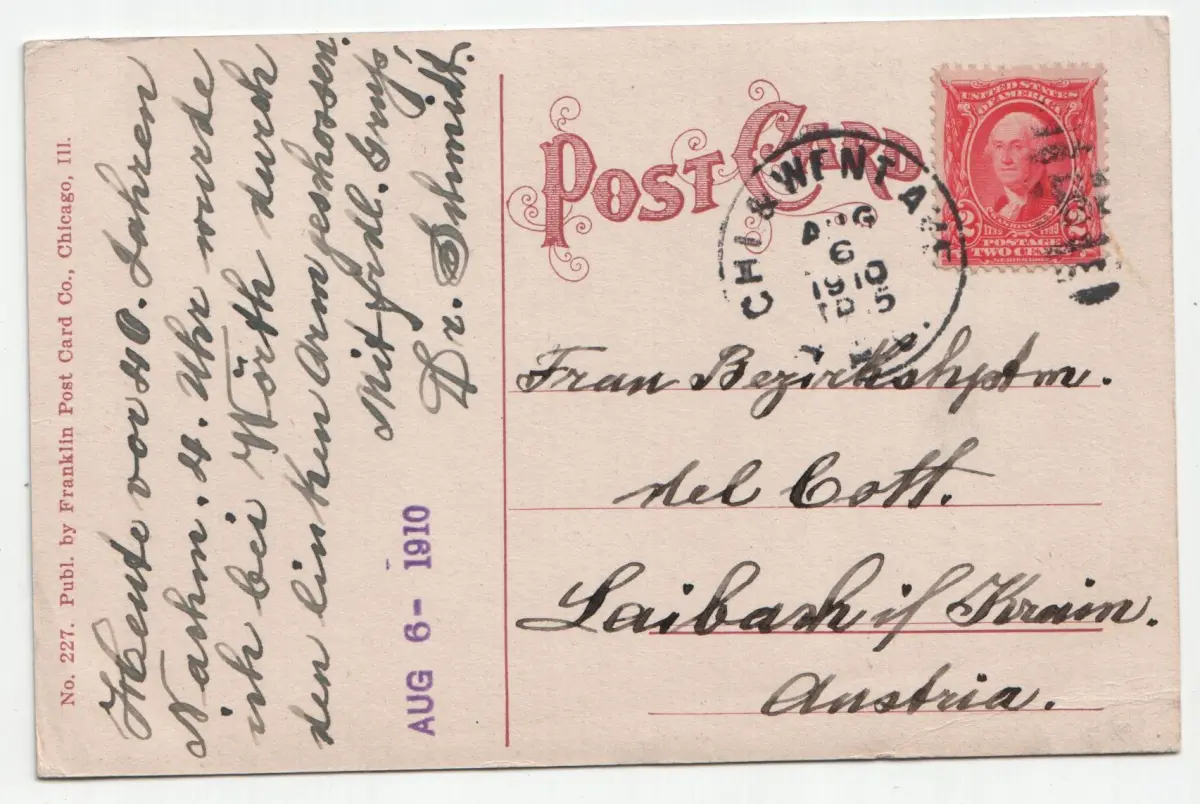 No. 227. Publ. by Franklin Post Card Co., Chicago, Ill.
Heute vor 40. Jahren
Nachm. 4. Uhr wurde
ich bei Wörth durch
den linken Arm geschossen.
Mit frdl. Gruß
Dr. Schmidt.
AUG 6- 1910
POST CARD
CHI & WENT AVE
AUG
6
1910
UNITED STATES
OF AMERICA
2 2
POSTAGE
TWO CENTS
Frau Bezirkshptm.
del Cott.
Laibach i/ Krain.
Austria.